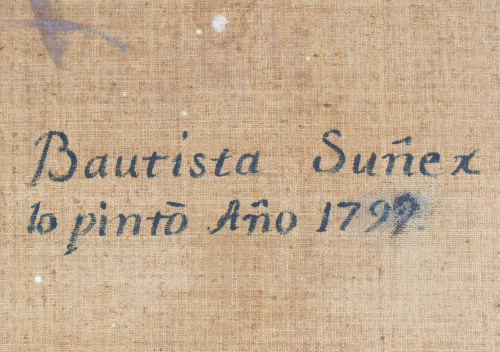 Bautista Suñex
lo pintò Año 1799.